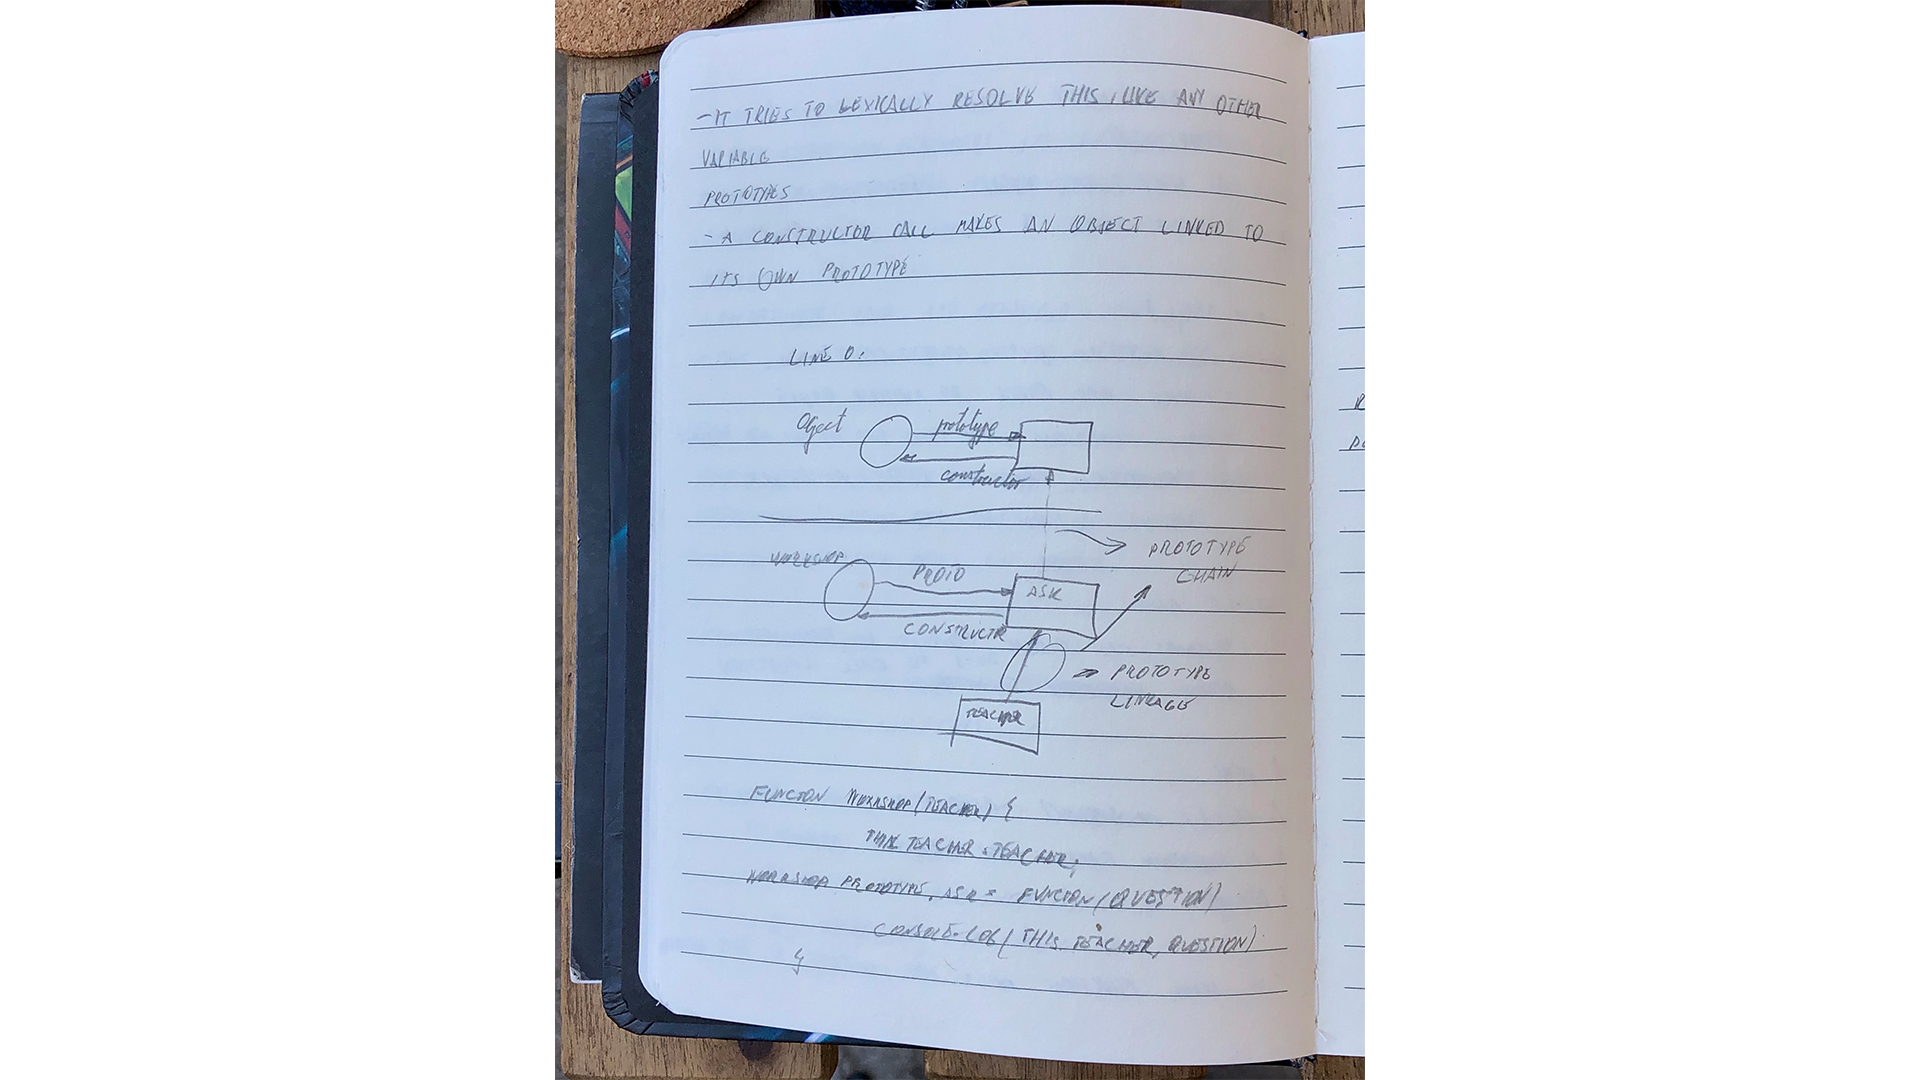 - IT TRIES TO LEXICALLY RESOLVE THIS, LIKE ANY OTHER
VARIABLE
PROTOTYPES
- A CONSTRUCTOR CALL MAKES AN OBJECT LINKED TO
ITS OWN PROTOTYPE
LINE 0:
Object
prototype
constructor
WORKSHOP
PROTO
ASK
CONSTRUCTR
PROTOTYPE
CHAIN
PROTOTYPE
LINKAGE
TEACHER
FUNCTON WORKSHOP(TEACHER) {
THIS.TEACHER = TEACHER;
WORKSHOP PROTOTYPE.ASK = FUNCTON(QUESTION)
CONSOLE.LOG(THIS.TEACHER, QUESTION)
}